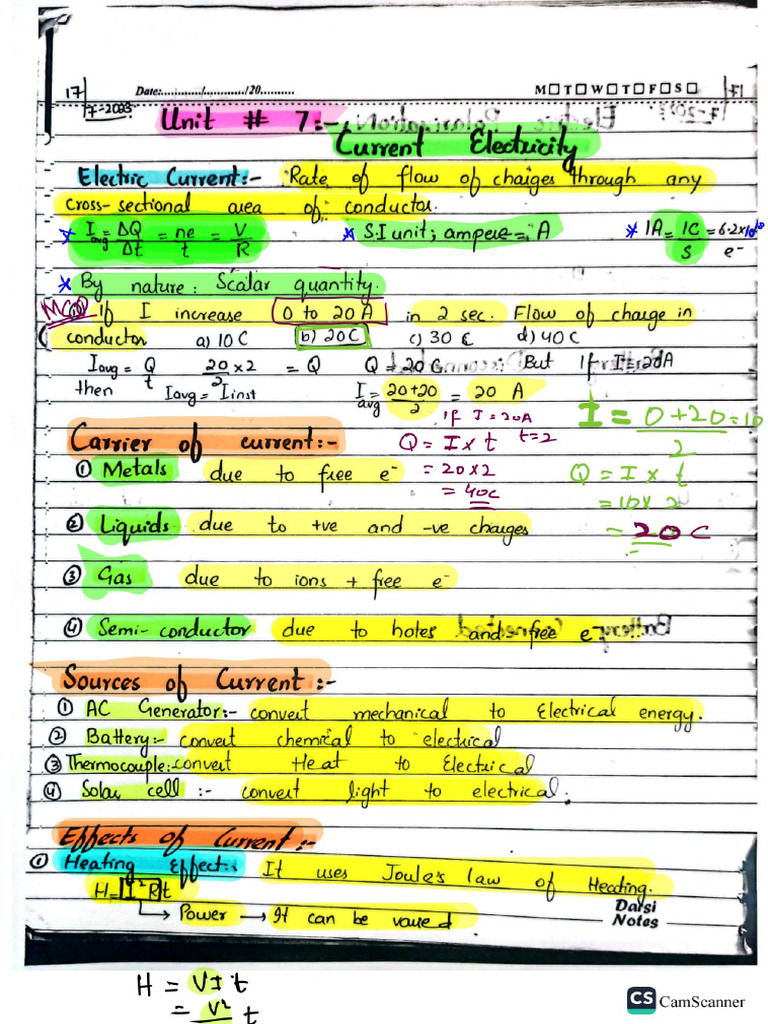 17
7-2023
Date:............/............/20..........
M☐T☐W☐T☐F☐S☐
Unit # 7:-
Current Electricity
Electric Current:- Rate of flow of charges through any
cross-sectional area of conductor.
* I avg = ΔQ/Δt = ne/t = V/R * S.I unit; ampere = A * 1A = 1C/S = 6.2x10 e-
* By nature: Scalar quantity.
MCQ If I increase 0 to 20 A in 2 sec. Flow of charge in
conductor a) 10 C b) 20C c) 30 C d) 40 C
I avg = Q/t 20/2 x 2 = Q Q = 20 C But If I = 20A
then I avg = I inst I avg = 20+20/2 = 20 A
If I = 20A
Q = I x t t = 2
= 20 x 2
= 40C
I = 0+20/2 = 10
Q = I x t
= 10 x 2
= 20 C
Carrier of current:-
① Metals due to free e-
② Liquids due to +ve and -ve charges
③ Gas due to ions + free e-
④ Semi-conductor due to holes and free e-
Sources of Current:-
① AC Generator:- convert mechanical to Electrical energy.
② Battery:- convert chemical to electrical
③ Thermocouple:- convert Heat to Electrical
④ Solar cell:- convert light to electrical.
Effects of Current:-
① Heating Effect:- It uses Joule's law of Heating.
H = I²Rt
Power → It can be varied
Darsi
Notes
H = VIt
= V² t
CS CamScanner